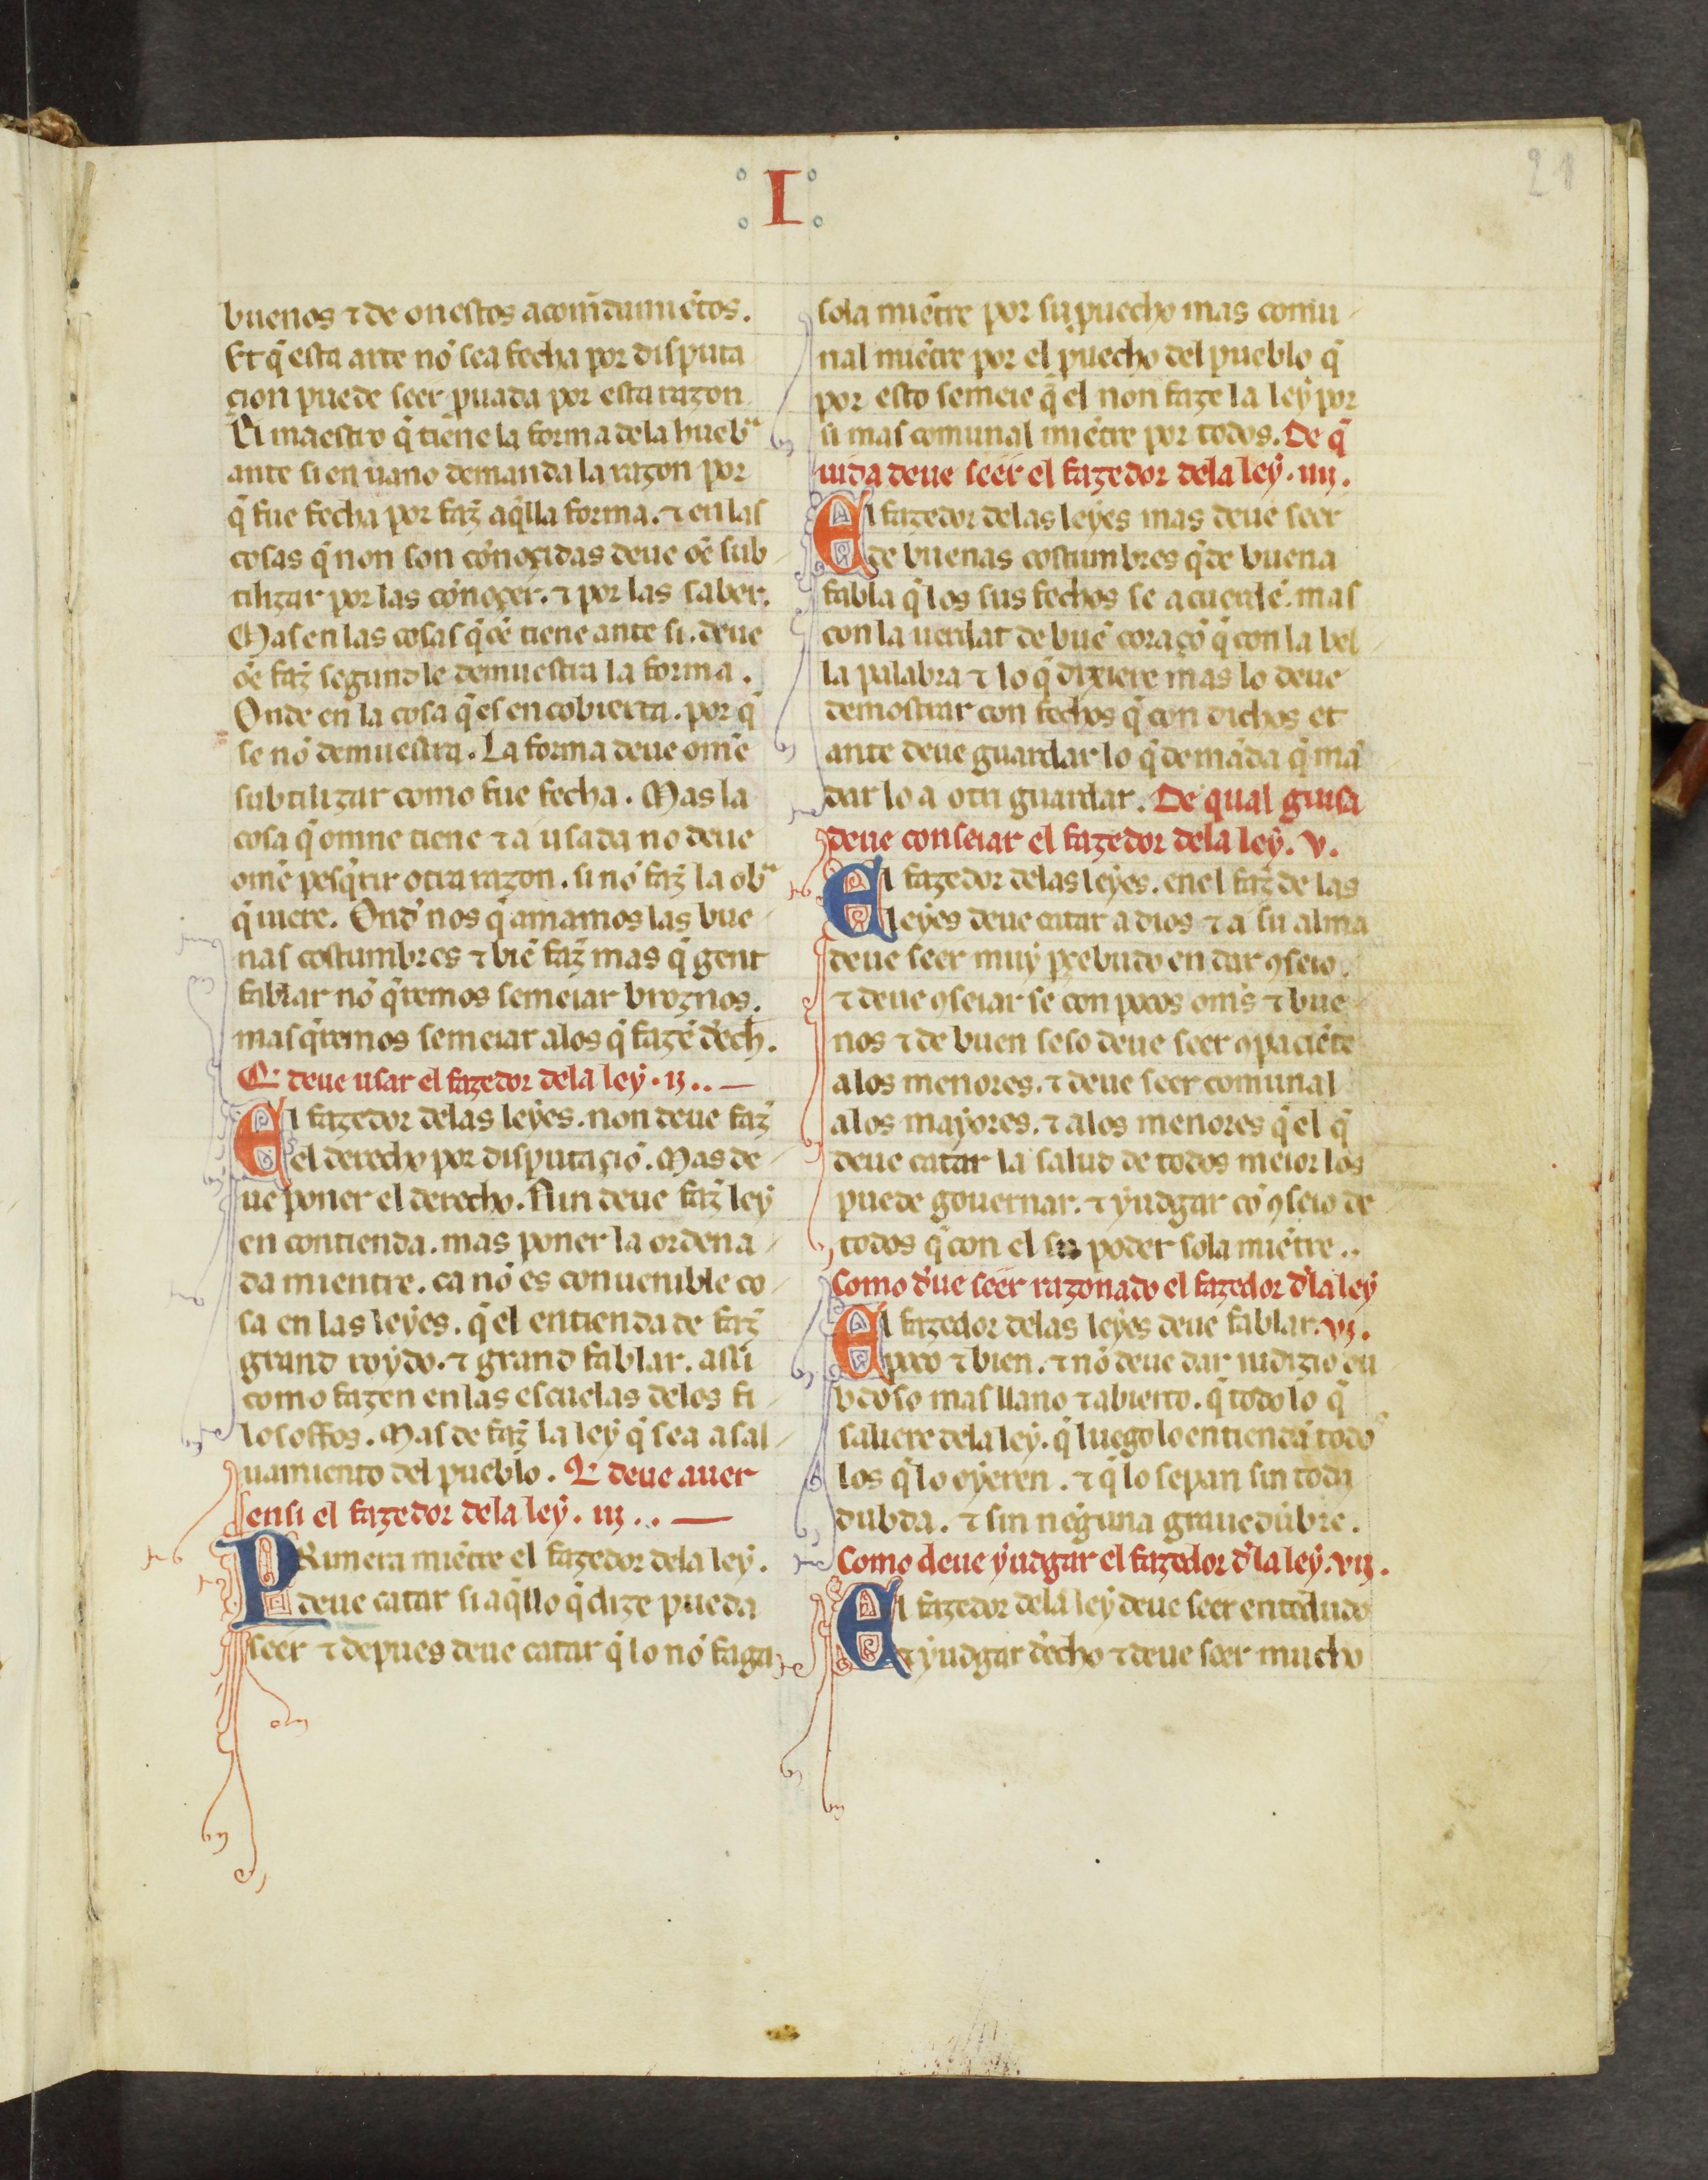 I
21
buenos ⁊ de onestos acom̃damiẽtos.
Et q̃ esta arte nõ sea fecha por disputa
çion puede seer puada por esta razon
El maestro q̃ tiene la forma dela huebᵃ
ante si en uano demanda la razon por
q̃ fue fecha por faz̃ aq̃lla forma. ⁊ en las
cosas q̃ non son cõnoçidas deue oẽ sub
tilizar por las cõnoçer. ⁊ por las saber.
Mas en las cosas q̃ oẽ tiene ante si. deue
oẽ faz̃ segund le demuestra la forma.
Onde en la cosa q̃ es encobierta. por q̃
se nõ demuestra. La forma deue omẽ
subtilizar como fue fecha. Mas la
cosa q̃ omne tiene ⁊ a usada no deue
omẽ pesq̃rir otra razon. si nõ faz̃ la obᵃ
q̃ uiere. Ond̉ nos q̃ amamos las bue
nas costumbres ⁊ biẽ faz̃ mas q̃ gent
fablar nõ q̃remos semeiar broznos.
mas q̃remos semeiar alos q̃ fazẽ d̉ech̉.
C̃ deue usar el fazedor dela ley. ij..
El fazedor delas leyes. non deue faz̃
el derecho por disputaçiõ. Mas de
ue poner el derecho. Nin deue faz̃ ley
en contienda. mas poner la ordena
da mientre. ca nõ es conuenible co
sa en las leyes. q̃ el entienda de faz̃
grand roydo. ⁊ grand fablar. assi
como fazen en las escuelas delos fi
losoffos. Mas de faz̃ la ley q̃ sea a sal
uamiento del pueblo. Q̃ deue auer
en si el fazedor dela ley. iij..
PRimera miẽtre el fazedor dela ley.
deue catar si aq̃llo q̃ dize pueda
seer ⁊ depues deue catar q̃ lo nõ faga
sola miẽtre por su puecho mas comu
nal miẽtre por el puecho del pueblo q̃
por esto semeie q̃ el non faze la ley por
si mas comunal miẽtre por todos. De q̃
uida deue seer el fazedor dela ley. iiij.
El fazedor delas leyes mas deue seer
de buenas costumbres q̃ de buena
fabla q̃ los sus fechos se acuerdẽ. mas
con la uerdat de buẽ coraçõ q̃ con la bel
la palabra ⁊ lo q̃ dixiere mas lo deue
demostrar con fechos q̃ con dichos et
ante deue guardar lo q̃ demãda q̃ mã
dar lo a otri guardar. De qual guisa
deue conseiar el fazedor dela ley. v.
El fazedor delas leyes. en el faz̃ de las
leyes deue catar a dios ⁊ a su alma
deue seer muy preuudo en dar ꝯseio.
⁊ deue ꝯseiar se con pocos om̃s ⁊ bue
nos ⁊ de buen seso deue seer ꝯpaciẽte
alos menores. ⁊ deue seer comunal
alos mayores. ⁊ alos menores q̃ el q̃
deue catar la salud de todos meior los
puede gouernar. ⁊ yudgar cõ ꝯseio de
todos q̃ con el su poder sola miẽtre..
Como d̉ue seer razonado el fazedor d̉la ley
El fazedor delas leyes deue fablar. vj.
poco ⁊ bien. ⁊ nõ deue dar iudizio du
bdoso mas llano ⁊ abierto. q̃ todo lo q̃
saliere dela ley. q̃ luego lo entiendã todoˢ
los q̃ lo oyeren. ⁊ q̃ lo sepan sin toda
dubda. ⁊ sin neguna grauedũbre.
Como deue yudgar el fazedor d̉la ley. vij.
El fazedor dela ley deue seer entẽdudo
⁊ yudgar d̉echo ⁊ deue seer mucho